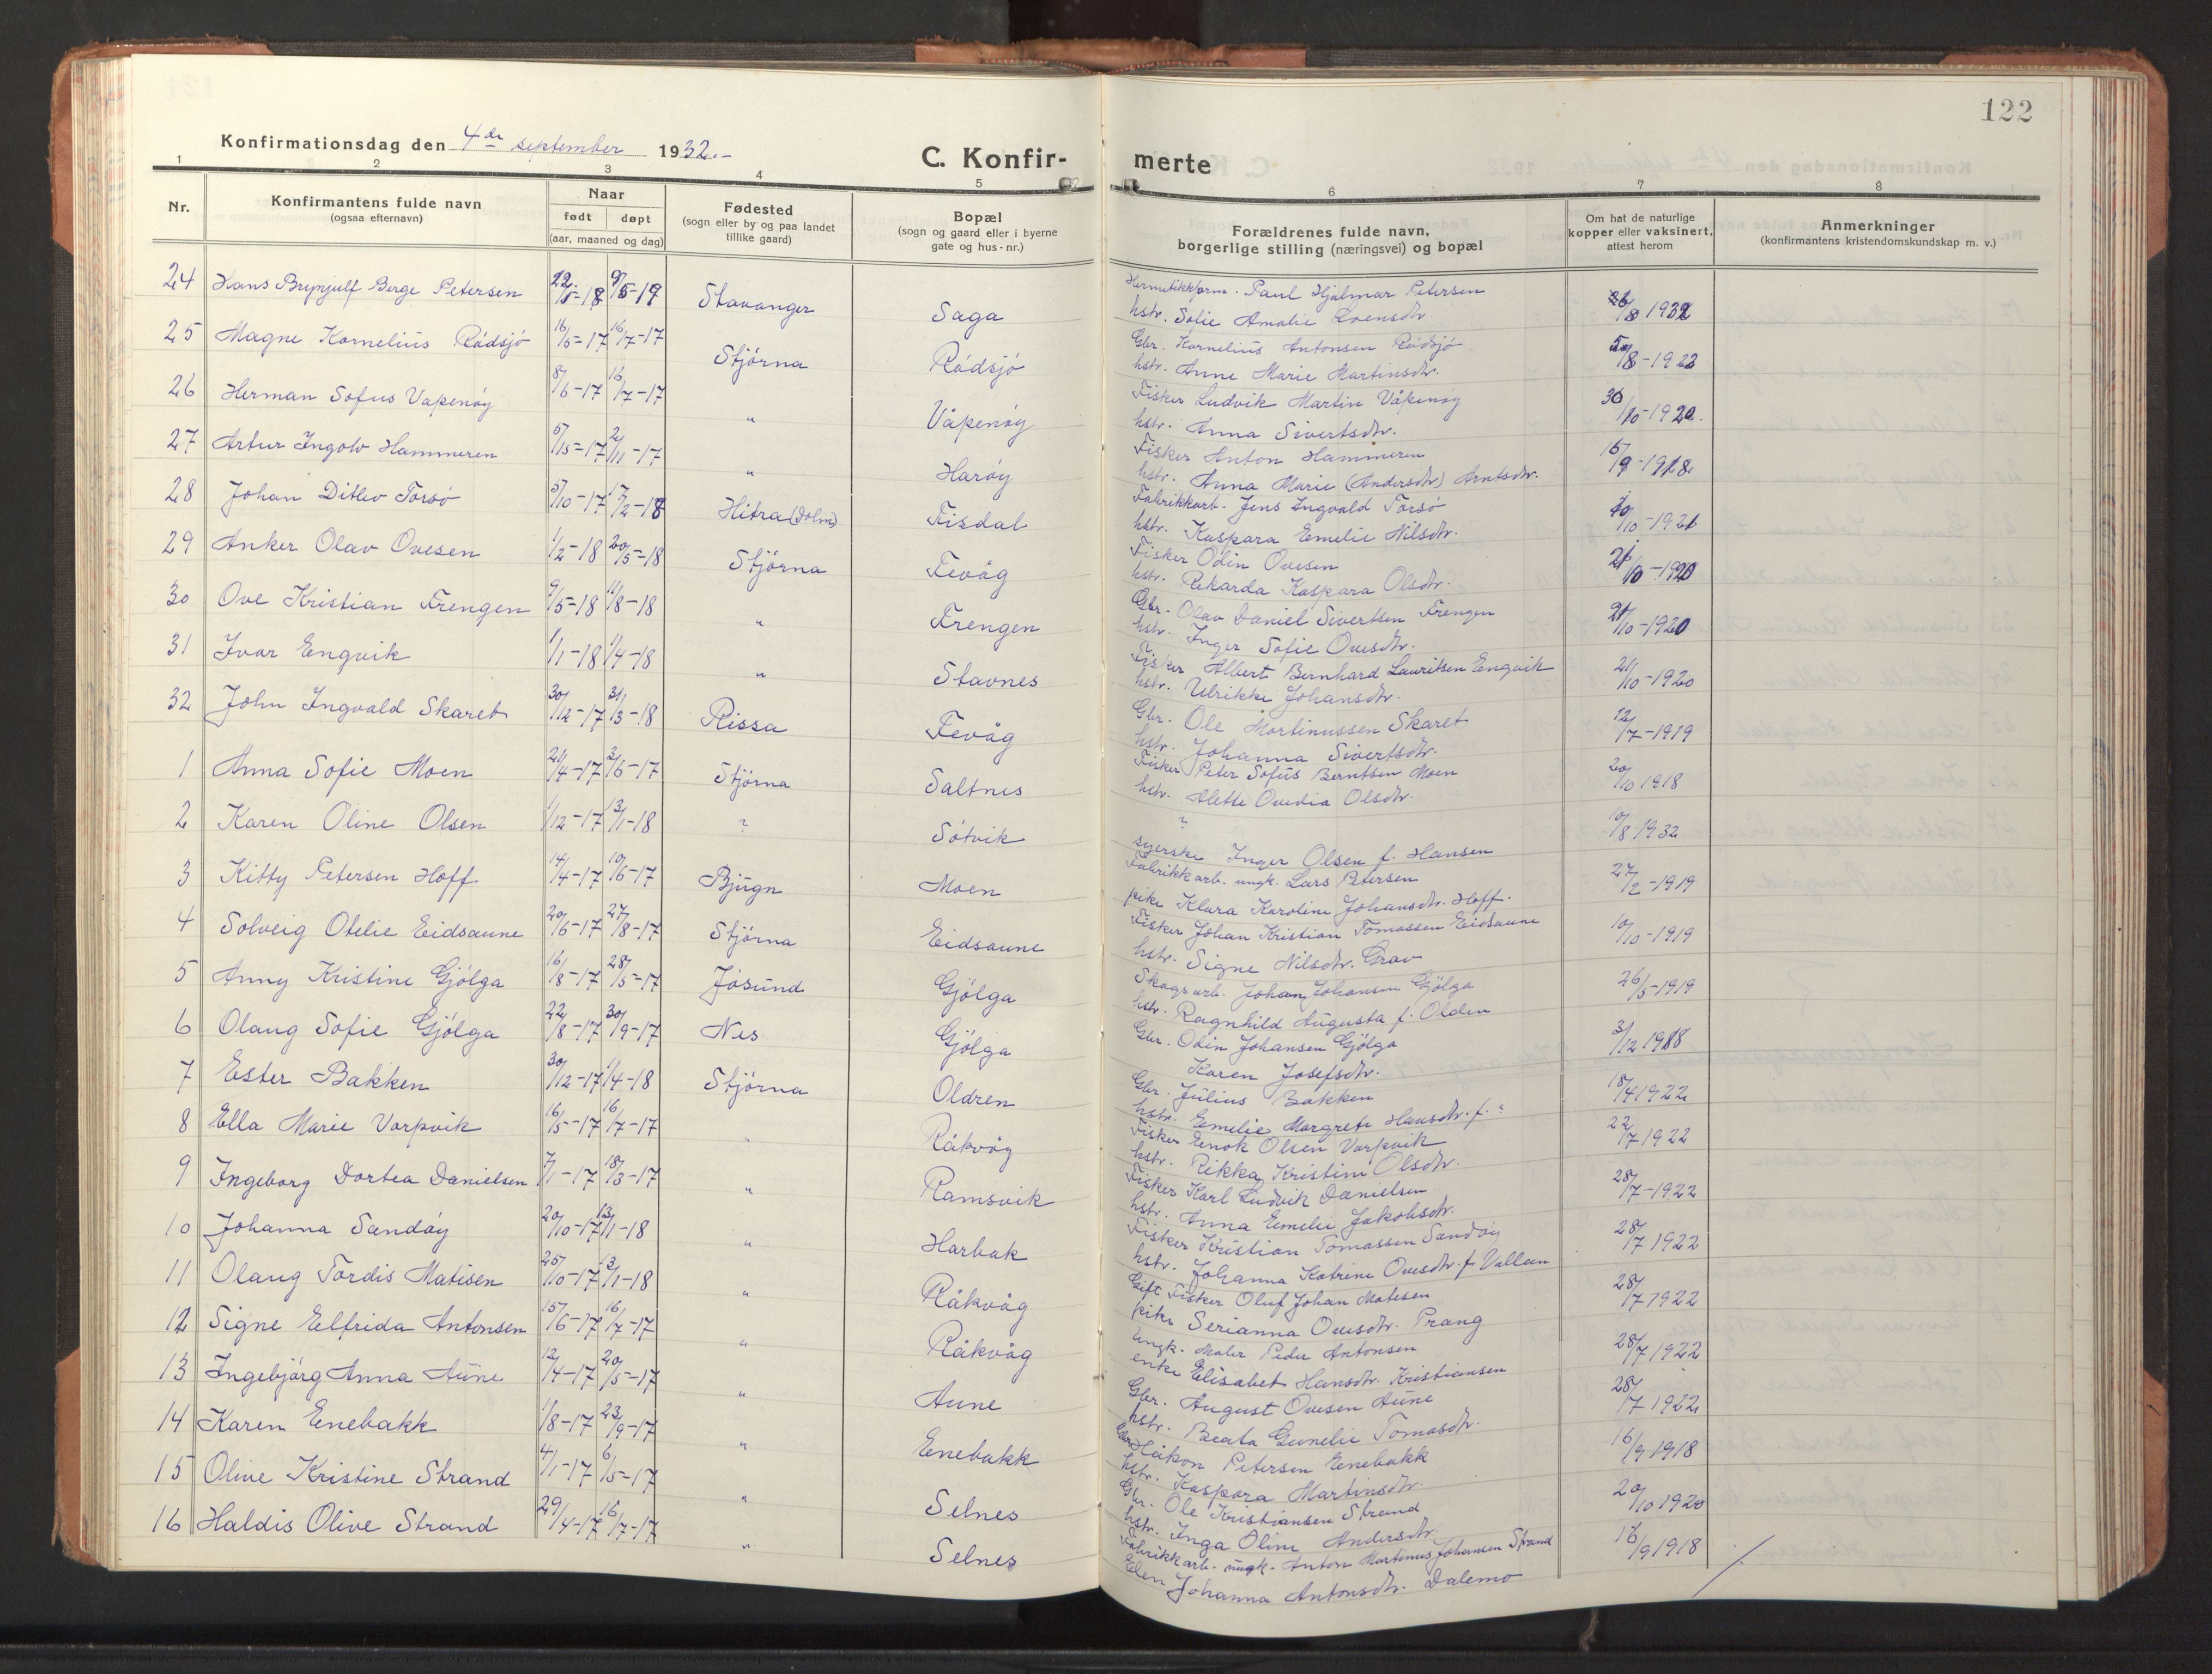 122
Konfirmationsdag den 4de september 1932.-
C. Konfirmerte
1 2 3 4 5 6 7 8
Nr.
Konfirmantens fulde navn
(ogsaa efternavn)
Naar
født døpt
(aar, maaned og dag)
Fødested
(sogn eller by og paa landet
tillike gaard)
Bopæl
(sogn og gaard eller i byerne
gate og hus-nr.)
Forældrenes fulde navn,
borgerlige stilling (næringsvei) og bopæl
Om hat de naturlige
kopper eller vaksinert,
attest herom
Anmerkninger
(konfirmantens kristendomskundskap m. v.)
24 Hans Brynjulf Berge Petersen 22/5-18 9/5-19 Stavanger Saga Paul Hjalmar Petersen /8 1932
hstr. Sofie Amalie
25 Magne Kornelius Rödsjö 16/6-17 16/7-17 Stjörna Rödsjö Gbr. Kornelius Antonsen Rödsjö /8-1922
hstr. Anne Marie Martinsdtr.
26 Herman Sofus Våpenöy 8/6-17 16/7-17 " Våpenöy Fisker Ludvik Martin Våpenöy 30/10-1920.
hstr. Anna Sivertsdtr.
27 Artur Ingolv Hammeren 2/11-17 " Haröy Fisker Anton Hammeren /9-1918.
hstr. Anna Marie (Andersdtr) Arntsdtr.
28 Johan Ditlev Torsö 5/10-17 17/2-18 Hitra (Dolm) Fisdal Fabrikkarb. Jens Ingvald Torsö /10-1921
hstr. Kaspara Emelie Nilsdtr.
29 Anker Olav Ovesen 1/2-18 20/5-18 Stjörna Fevåg Fisker Odin Ovesen 21/10-1920
hstr. Rikarda Kaspara Olsdtr.
30 Ove Kristian Frengen 9/5-18 11/8-18 " Frengen Gbr. Olav Daniel Sivertsen Frengen 21/10-1920
hstr. Inger Sofie Ovesdtr.
31 Ivar Engvik 1/1-18 1/4-18 " Stavnes Fisker Albert Bernhard Lauritsen Engvik 21/10-1920
hstr. Ulrikke Johansdtr.
32 John Ingvald Skaret 30/12-17 31/3-18 Rissa Fevåg Gbr. Ole Martinussen Skaret 12/7-1919
hstr. Johanna Sivertsdtr.
1 Anna Sofie Moen 21/4-17 3/6-17 Stjörna Saltnes Fisker Peter Sofus Berntsen Moen 20/10 1918
hstr. Alette Ovedia Olsdtr.
2 Karen Oline Olsen 1/12-17 13/1-18 ? Sötvik ? 10/8-1932
syerske Inger Olsen f. Hansen
3 Kitty Petersen Hoff 14/4-17 10/6-17 Bjugn Moen Fabrikkarb. ungk. Lars Petersen 27/2-1919
pike Klara Karoline Johansdtr. Hoff.
4 Solveig Otelie Eidsaune 20/6-17 27/8-17 Stjörna Eidsaune Fisker Johan Kristian Tomassen Eidsaune 10/10-1919
hstr. Signe Nilsdtr. Grav
5 Anny Kristine Gjölga 16/8-17 28/5-17 Jösund Gjölga Skogsarb. Johan Johansen Gjölga 26/5-1919
hstr. Ragnhild Augusta f. Olden
6 Olaug Sofie Gjölga 22/8-17 30/9-17 Nes Gjölga Gbr. Odin Johansen Gjölga 3/12 1918
Karen Josefsdtr.
7 Ester Bakken 30/12-17 1/4-18 Stjörna Oldren Gbr. Julius Bakken 18/4 1922
hstr. Emelie Margrete Hansdtr. f. ?
8 Ella Marie Varpvik 16/5-17 16/7-17 " Råkvåg Fisker Enok Olsen Varpvik 22/7 1922
hstr. Rikka Kristine Olsdtr.
9 Ingeborg Dortea Danielsen 7/1-17 18/3-17 " Ramsvik Fisker Karl Ludvik Danielsen 28/7-1922
hstr. Anna Emelie Jakobsdtr.
10 Johanna Sandöy 20/10-17 13/1-18 " Harbak Fisker Kristian Tomassen Sandöy 28/7 1922
hstr. Johanna Katrine Ovesdtr. f. Vallen
11 Olaug Tordis Matisen 25/10-17 13/1-18 " Råkvåg Gift Fisker Oluf Johan Matesen 28/7 1922
pike Serianna Ovesdtr. Prang
12 Signe Elfrida Antonsen 15/6-17 16/7-17 " Råkvåg Ungk. Maler Peder Antonsen 28/7 1922
enke Elisabet Hansdtr. Kristiansen
13 Ingebjörg Anna Aune 12/4-17 20/5-17 " Aune Gbr. August Ovesen Aune 28/7 1922
hstr. Beata Gunelie Tomasdtr.
14 Karen Enebakk 1/8-17 23/9-17 " Enebakk Gbr. Håkon Petersen Enebakk 16/9 1918
hstr. Kaspara Martinsdtr.
15 Olive Kristine Strand 4/1-17 6/5-17 " Selnes Gbr. Ole Kristiansen Strand 20/10 1920
hstr. Inga Oline Andersdtr.
16 Haldis Olive Strand 29/4-17 16/7-17 " Selnes Fabrikkarb. ungk. Anton Martinus Johansen Strand 16/9 1918
Ellen Johanna Antonsdtr. Dalemo